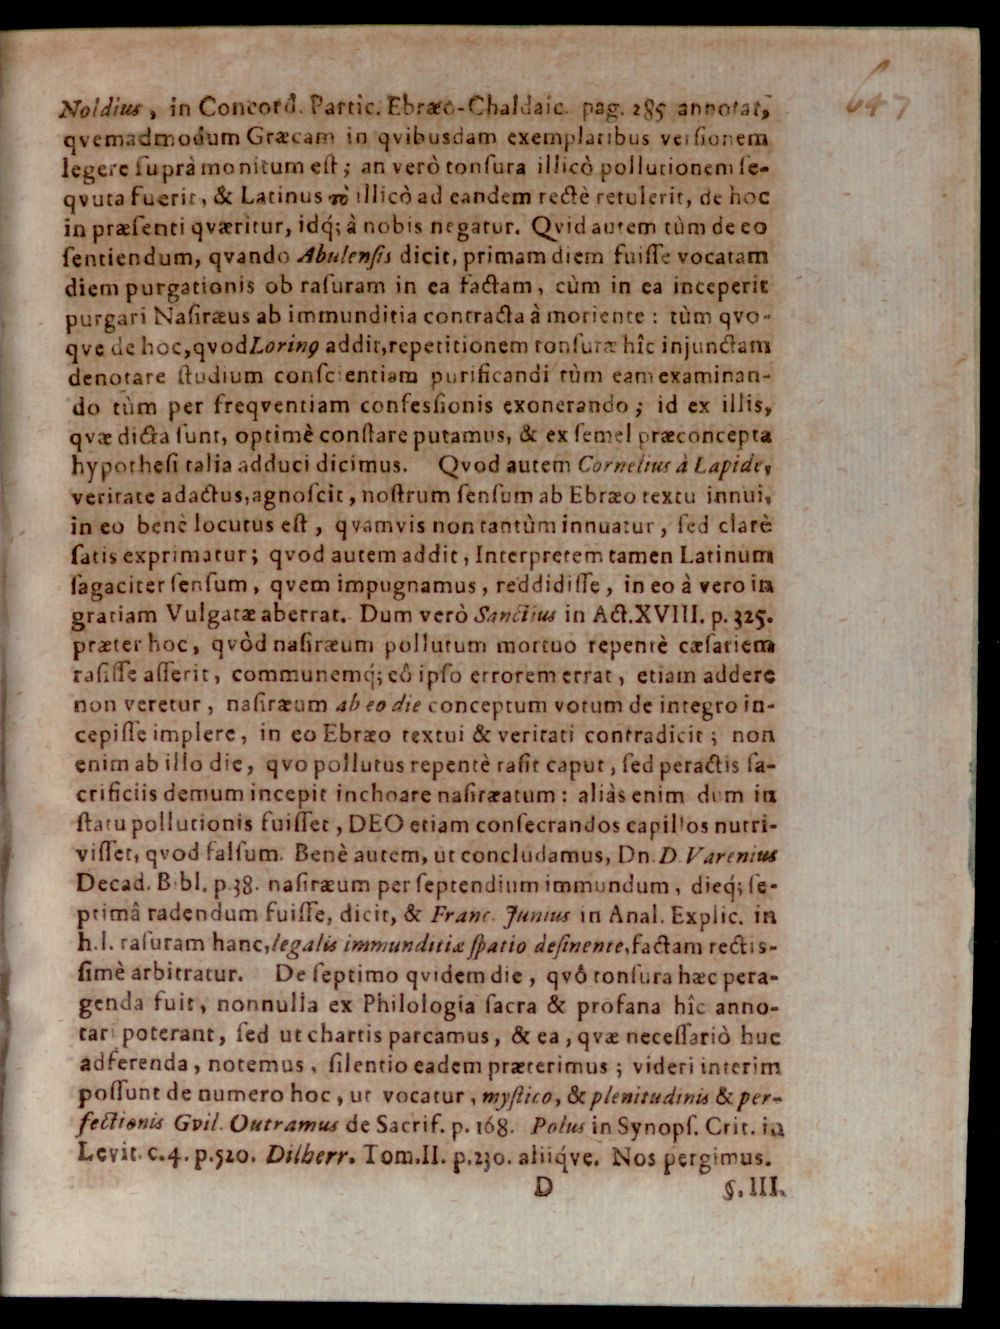 647
Noldius, in Concord. Partic. Ebræo-Chaldaic. pag. 285 annotat,
qvemadmodum Græcam in qvibusdam exemplaribus versionem
legere ſuprà monitum eſt; an verò tonſura illicò pollutionem ſe-
qvuta fuerit, & Latinus τὸ illicò ad eandem rectè retulerit, de hoc
in præſenti qværitur, idq; à nobis negatur. Qvid autem tùm de eo
ſentiendum, qvando Abulenſis dicit, primam diem fuiſſe vocatam
diem purgationis ob raſuram in ea factam, cùm in ea inceperit
purgari Naſiræus ab immunditia contracta à moriente: tùm qvo-
qve de hoc, qvod Lorinꝰ addit, repetitionem tonſuræ hîc injunctam
denotare ſtudium conſcientiam purificandi tùm eam examinan-
do tùm per freqventiam confeſſionis exonerando; id ex illis,
qvæ dicta ſunt, optimè conſtare putamus, & ex ſemel præconcepta
hypotheſi talia adduci dicimus. Qvod autem Cornelius à Lapide,
veritate adactus, agnoſcit, noſtrum ſenſum ab Ebræo textu innui,
in eo benè locutus eſt, qvamvis non tantùm innuatur, ſed clarè
ſatis exprimatur; qvod autem addit, Interpretem tamen Latinum
ſagaciter ſenſum, qvem impugnamus, reddidiſſe, in eo à vero in
gratiam Vulgatæ aberrat. Dum verò Sanctius in Act. XVIII. p. 325.
præter hoc, qvòd naſiræum pollutum mortuo repentè cæſariem
raſiſſe aſſerit, communemq; eô ipſo errorem errat, etiam addere
non veretur, naſiræum ab eo die conceptum votum de integro in-
cepiſſe implere, in eo Ebræo textui & veritati contradicit; non
enim ab illo die, qvo pollutus repentè raſit caput, ſed peractis ſa-
crificiis demum incepit inchoare naſiræatum: aliàs enim dum in
ſtatu pollutionis fuiſſet, DEO etiam conſecrandos capillos nutri-
viſſet, qvod falſum. Benè autem, ut concludamus, Dn. D. Varenius
Decad. Bibl. p. 38. naſiræum per ſeptendium immundum, dieq; ſe-
ptimâ radendum fuiſſe, dicit, & Franc. Junius in Anal. Explic. in
h.l. raſuram hanc, legalis immunditiæ ſpatio deſinente, factam rectis-
ſimè arbitratur. De ſeptimo qvidem die, qvô tonſura hæc pera-
genda fuit, nonnulla ex Philologia ſacra & profana hîc anno-
tari poterant, ſed ut chartis parcamus, & ea, qvæ neceſſariò huc
adferenda, notemus, ſilentio eadem præterimus; videri interim
poſſunt de numero hoc, ut vocatur, myſtico, & plenitudinis & per-
fectionis Gvil. Outramus de Sacrif. p. 168. Polus in Synopſ. Crit. in
Levit. c. 4. p. 520. Dilherr. Tom. II. p. 230. aliiqve. Nos pergimus.
D §. III.